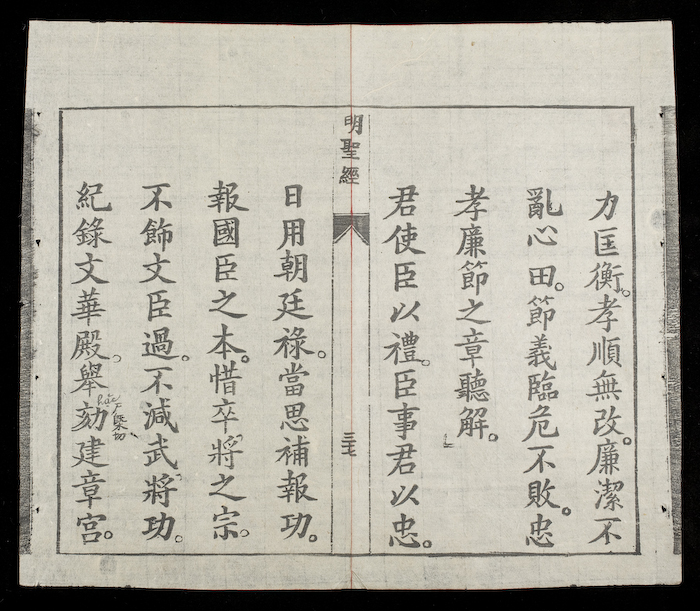 力匡衡。孝順無改。廉潔不
亂心田。節義臨危不敗。忠
孝廉節之章聽解。
君使臣以禮。臣事君以忠。
明聖經
三七
日用朝廷祿。當思補報功。
報國臣之本。惜卒將之宗。
不飾文臣過。不減武將功。
紀錄文華殿。舉劾建章宮。